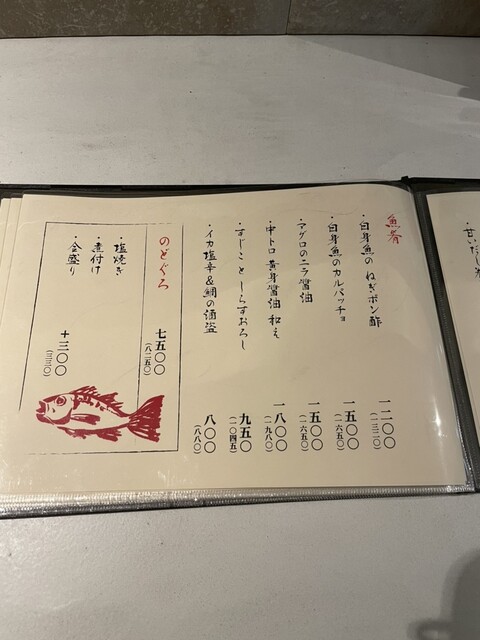 魚肴
・白身魚の ねぎポン酢 一二〇〇
(一三二〇)
・白身魚のカルパッチョ 一五〇〇
(一六五〇)
・マグロのニラ醤油 一五〇〇
(一六五〇)
・中トロ黄身醤油和え 一八〇〇
(一九八〇)
・すじことしらすおろし 九五〇
(一〇四五)
・イカ塩辛&鯛の酒盗 八〇〇
(八八〇)
のどぐろ 七五〇〇
(八二五〇)
・塩焼き
・煮付け
・金盛り +三〇〇
(三三〇)